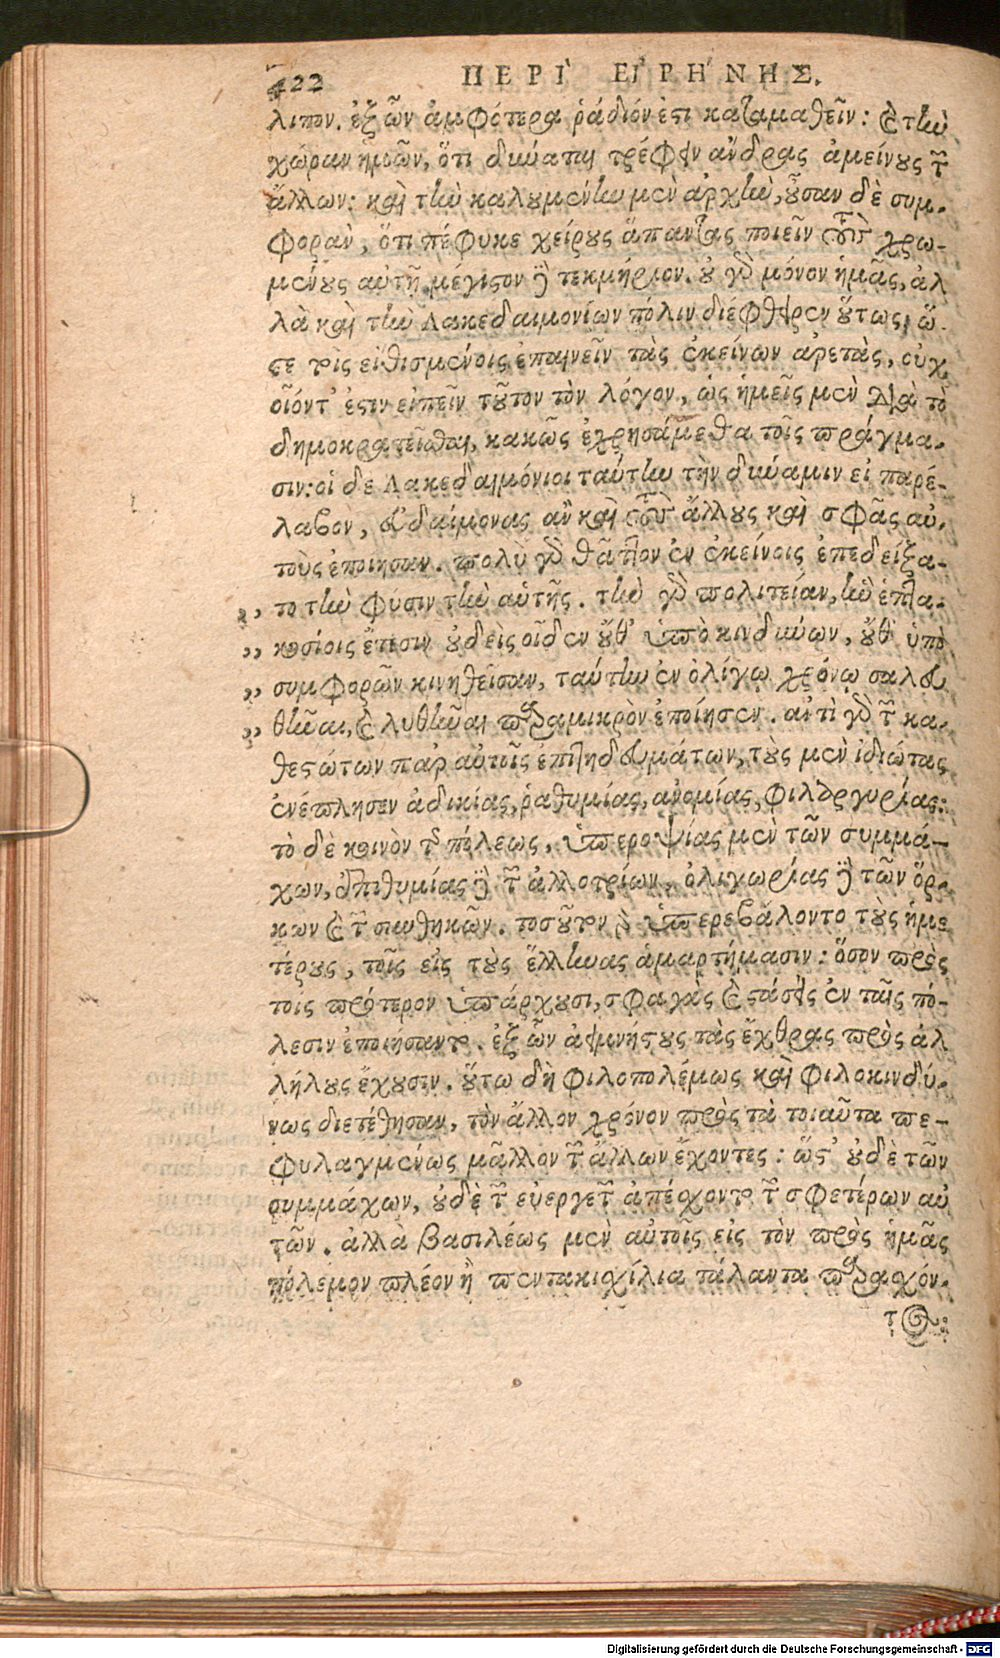 422 ΠΕΡΙ' ΕΙ'ΡΗ'ΝΗΣ.
λιπον. ἐξ ὧν ἀμφότερα ῥάδιόν ἐστι καταμαθεῖν: καὶ τὴν
χώραν ἡμῶν, ὅτι δύναται τρέφειν ἄνδρας ἀμείνους τῶν
ἄλλων: καὶ τὴν καλουμένην μὲν ἀρχὴν, οὖσαν δὲ συμ-
φορὰν, ὅτι πέφυκε χείρους ἅπαντας ποιεῖν τοὺς χρω-
μένους αὐτῇ. μέγιστον δὲ τεκμήριον. οὐ γὰρ μόνον ἡμᾶς, ἀλ
λὰ καὶ τὴν Λακεδαιμονίων πόλιν διέφθειρεν οὕτως, ὥ-
στε τοῖς εἰθισμένοις ἐπαινεῖν τὰς ἐκείνων ἀρετὰς, οὐχ
οἷόντ' ἐστιν εἰπεῖν τοῦτον τὸν λόγον, ὡς ἡμεῖς μὲν διὰ τὸ
δημοκρατεῖσθαι, κακῶς ἐχρησάμεθα τοῖς πράγμα-
σιν: οἱ δε Λακεδαιμόνιοι ταύτην τὴν δύναμιν εἰ παρέ-
λαβον, εὐδαίμονας ἂν καὶ τοὺς ἄλλους καὶ σφᾶς αὐ-
τοὺς ἐποίησαν. πολὺ γὰρ θᾶττον ἐν ἐκείνοις ἐπεδείξα-
,, το τὴν φύσιν τὴν αὑτῆς. τὴν γὰρ πολιτείαν, ἣν ἑπτα-
,, κοσίοις ἔτεσιν οὐδεὶς οἶδεν οὔθ' ὑπὸ κινδύνων, οὔθ' ὑπὸ
,, συμφορῶν κινηθεῖσαν, ταύτην ἐν ὀλίγῳ χρόνῳ σαλευ
,, θῆναι, καὶ λυθῆναι παραμικρὸν ἐποίησεν. ἀντὶ γὰρ τῶν κα-
θεστώτων παρ' αὐτοῖς ἐπιτηδευμάτων, τοὺς μὲν ἰδιώτας
ἐνέπλησεν ἀδικίας, ῥαθυμίας, ἀνομίας, φιλαργυρίας:
τὸ δὲ κοινὸν τῆς πόλεως, ὑπεροψίας μὲν τῶν συμμά-
χων, ἐπιθυμίας δὲ τῶν ἀλλοτρίων, ὀλιγωρίας δὲ τῶν ὅρ-
κων καὶ τῶν συνθηκῶν. τοσοῦτον δὲ ὑπερεβάλοντο τοὺς ἡμε
τέρους, τοῖς εἰς τοὺς ἕλληνας ἁμαρτήμασιν: ὅσον πρὸς
τοις πρότερον ὑπάρχουσι, σφαγὰς καὶ στάσεις ἐν ταῖς πό-
λεσιν ἐποίησαντο. ἐξ ὧν ἀειμνήστους τὰς ἔχθρας πρὸς ἀλ
λήλους ἔχουσιν. οὕτω δὴ φιλοπολέμως καὶ φιλοκινδύ-
νως διετέθησαν, τὸν ἄλλον χρόνον πρὸς τὰ τοιαῦτα πε-
φυλαγμένως μᾶλλον τῶν ἄλλων ἔχοντες: ὥστ' οὐδὲ τῶν
συμμάχων, οὐδὲ τῶν εὐεργετῶν ἀπέσχοντο τῶν σφετέρων αὐ
τῶν. ἀλλὰ βασιλέως μὲν αὐτοῖς εἰς τὸν πρὸς ἡμᾶς
πόλεμον πλέον ἢ πεντακισχίλια τάλαντα παρασχόν-
τος:
Digitalisierung gefördert durch die Deutsche Forschungsgemeinschaft - DFG